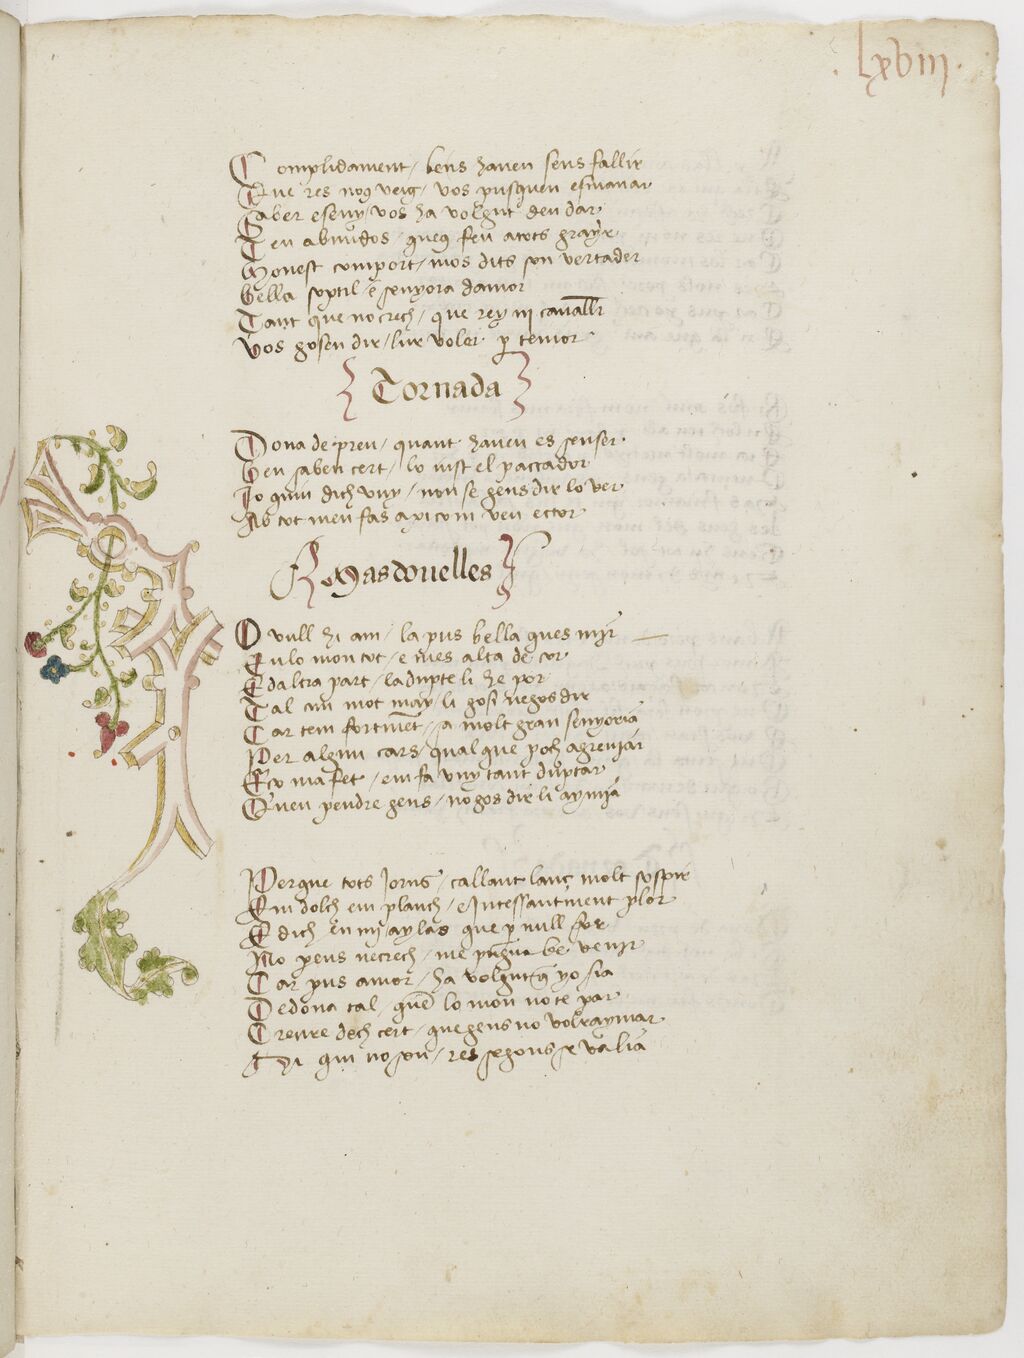 lxviii
Complidament / bens haueu sens fallir
Que res nous veig / vos pusquen esmanar
Saber e seny / vos ha volgut deu dar
E en abundos / queus feu a tots grayr
Honest comport / mos dits son vertader
Bella soptil / e senyora damor
Tant que no crech / que rey ni cauallr
Vos gosen dir / lur voler p temor
Tornada
Dona de preu / quant haueu es sencer
Ben saben cert / lo iust el peccador
Jo quin dich vuy / non se gens dir lo ver
Ab tot meu fas axi com veu ector
Masdouelles
O vull hi am / la pus bella ques mir
En lo mon tot / e mes alta de cor
E daltra part / la dupte li he por
Tal un mot may / li gosi negos dir
Car tem fortmet / a molt gran senyoria
Per algun cars / qualque poch agreujar
Eço ma fet / em fa vuy tant duptar
Quen pendre gens / no gos dir li aymia
Perque tots jorns / callant lanç molt sospir
Em dolch em planch / e Jncessantment plor
E dich en mi aylas que p null for
No pens ne crech / me puga be venir
Car pus amor / ha volgut q yo sia
De dona tal / que lo mon no te par
Creure dech cert / que gens no volra ymar
Mi qui no son / res segons se valia